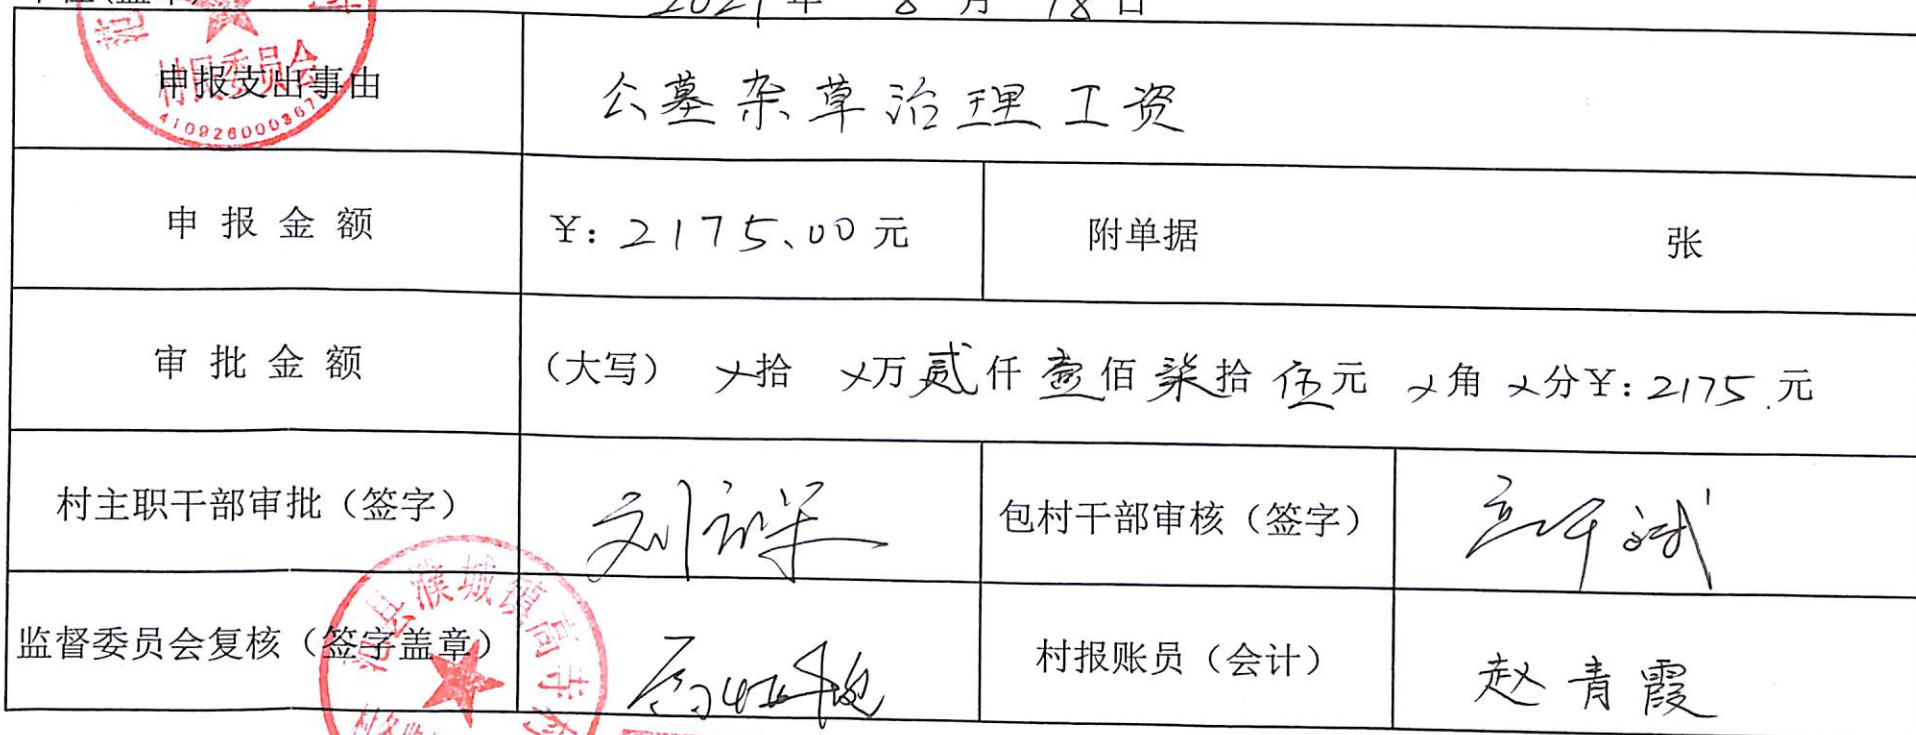 2021年 8月 18日
村民委员会
410926000367
申报支出事由 公墓杂草治理工资
申报金额 ¥: 2175.00元 附单据 张
审批金额 (大写) ㄨ拾 ㄨ万贰仟壹佰柒拾伍元 ㄨ角 ㄨ分¥: 2175.元
村主职干部审批（签字） 包村干部审核（签字）
监督委员会复核（签字盖章） 村报账员（会计） 赵青霞
县濮城镇高寺村